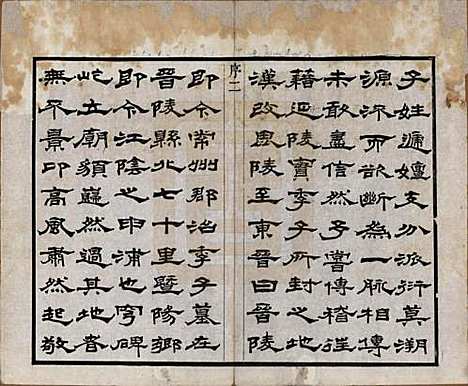 子姓遞嬗支分派衍莫溯
源流而欲斷為一脈相傳
未敢盡信然予嘗傳稽往
藉延陵實季子所封之地
漢改毘陵至東晉曰晉陵
序二
即今常州郡治季子墓在
晉陵縣北七十里暨陽鄉
即今江陰之申浦也穹碑
屹立廟貌巍然過其地者
無不景卬高風肅然起敬